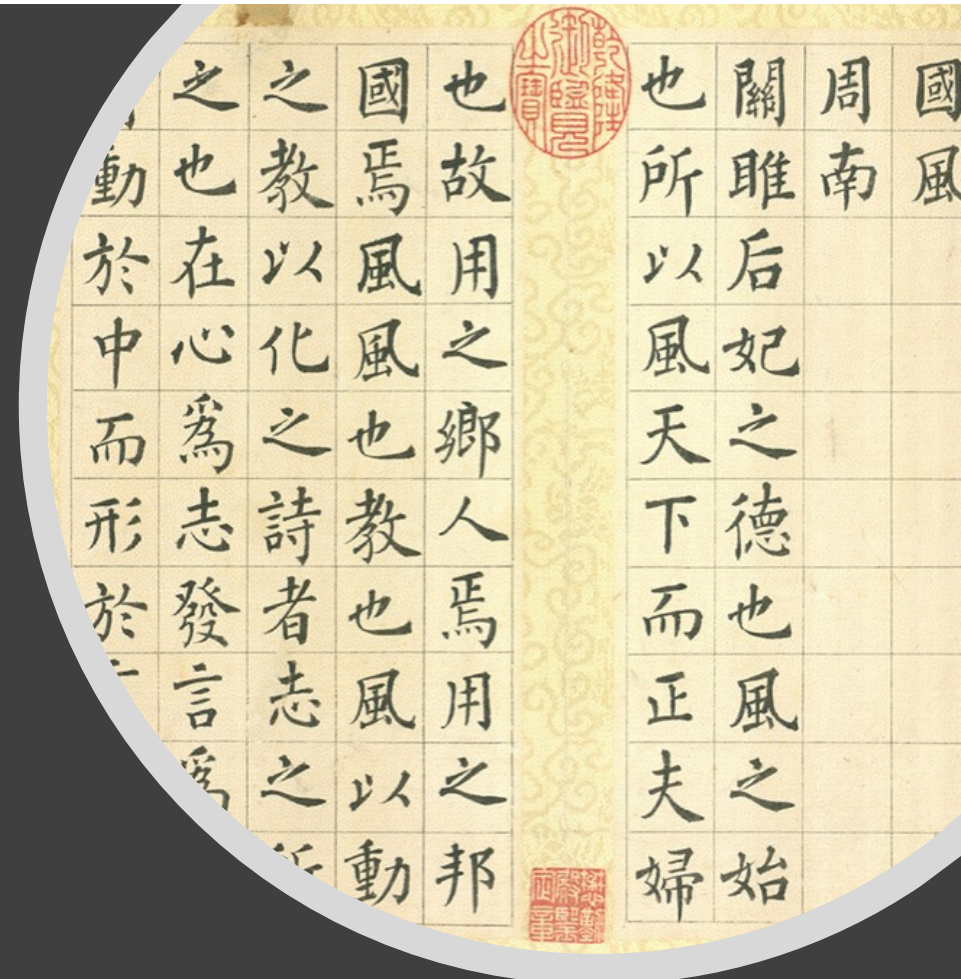 國風
周南
關雎后妃之德也風之始
也所以風天下而正夫婦
乾隆御覽之寶
懋勤殿鑒定章
也故用之鄉人焉用之邦
國焉風風也教也風以動
之教以化之詩者志之所
之也在心爲志發言爲
動於中而形於